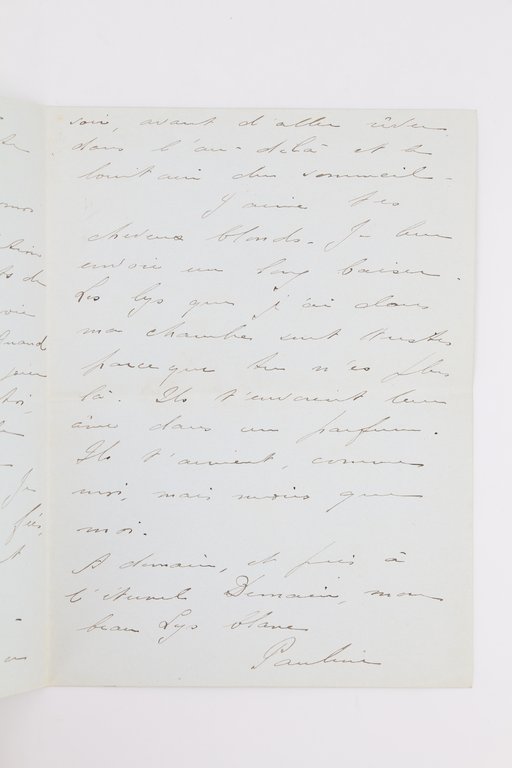 soir, avant d'aller rêver
dans l'au-delà et le
lointain du sommeil -
J'aime tes
cheveux blonds. Je leur
envoie un long baiser.
Les lys que j'ai dans
ma chambre sont tristes
parce que tu n'es plus
là. Ils t'envoient leur
âme dans un parfum.
Ils t'aiment, comme
moi, mais moins que
moi.
A demain, et puis à
l'éternel Demain, mon
beau Lys blanc
Pauline